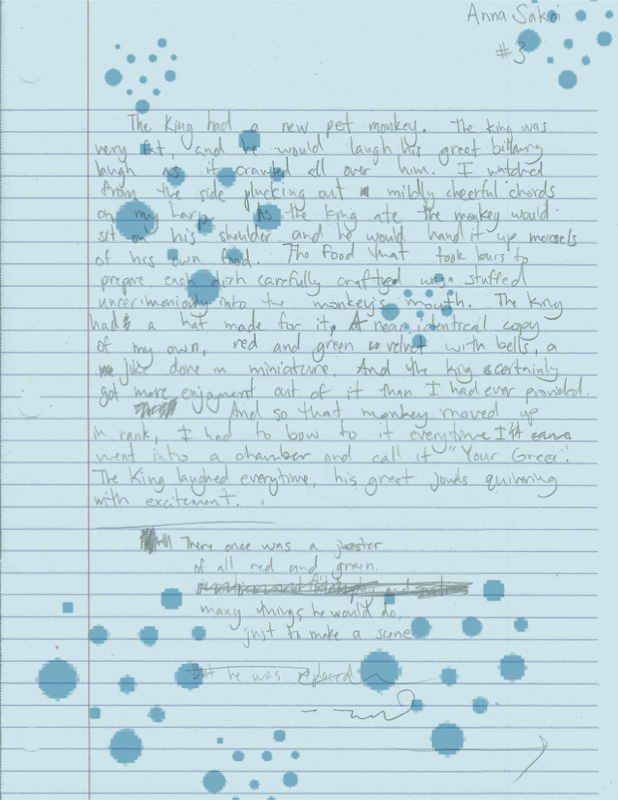 Anna Sakai
#3
The King had a new pet monkey. The king was
very fat, and he would laugh his great billowy
laugh as it crawled all over him. I watched
from the side plucking out mildly cheerful chords
on my harp. As the King ate the monkey would
sit on his shoulder and he would hand it up morsels
of his own food. The food that took hours to
prepare each dish carefully crafted was stuffed
uncerimoniously into the monkey's mouth. The King
had a hat made for it, A near identical copy
of my own, red and green velvet with bells, a
joke done in miniature. And the king certainly
got more enjoyment out of it than I had ever provided.
And so that monkey moved up
in rank, I had to bow to it everytime I came
went into a chamber and call it "Your Grace".
The King laughed everytime, his great jowls quivering
with excitement.
There once was a jester
of all red and green.
many things he would do,
just to make a scene
but he was replaced